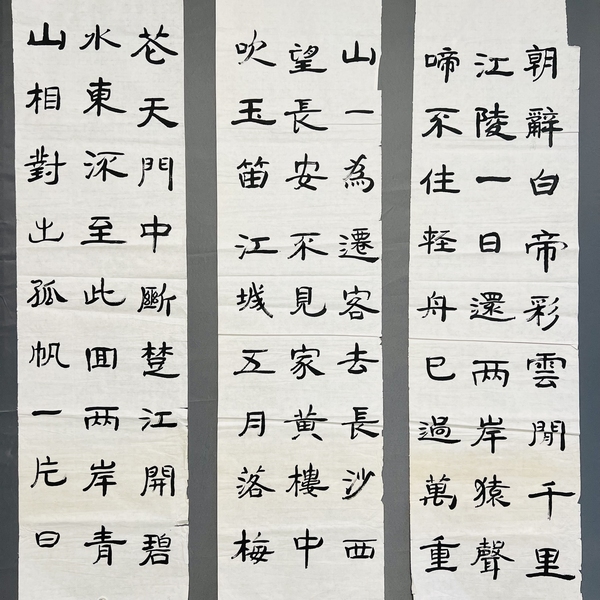 朝辭白帝彩雲閒千里
江陵一日還两岸猿聲
啼不住軽舟已過萬重
山一為遷客去長沙西
望長安不見家黃樓中
吹玉笛江城五月落梅
花天門中斷楚江開碧
水東流至此回两岸青
山相對出孤帆一片日